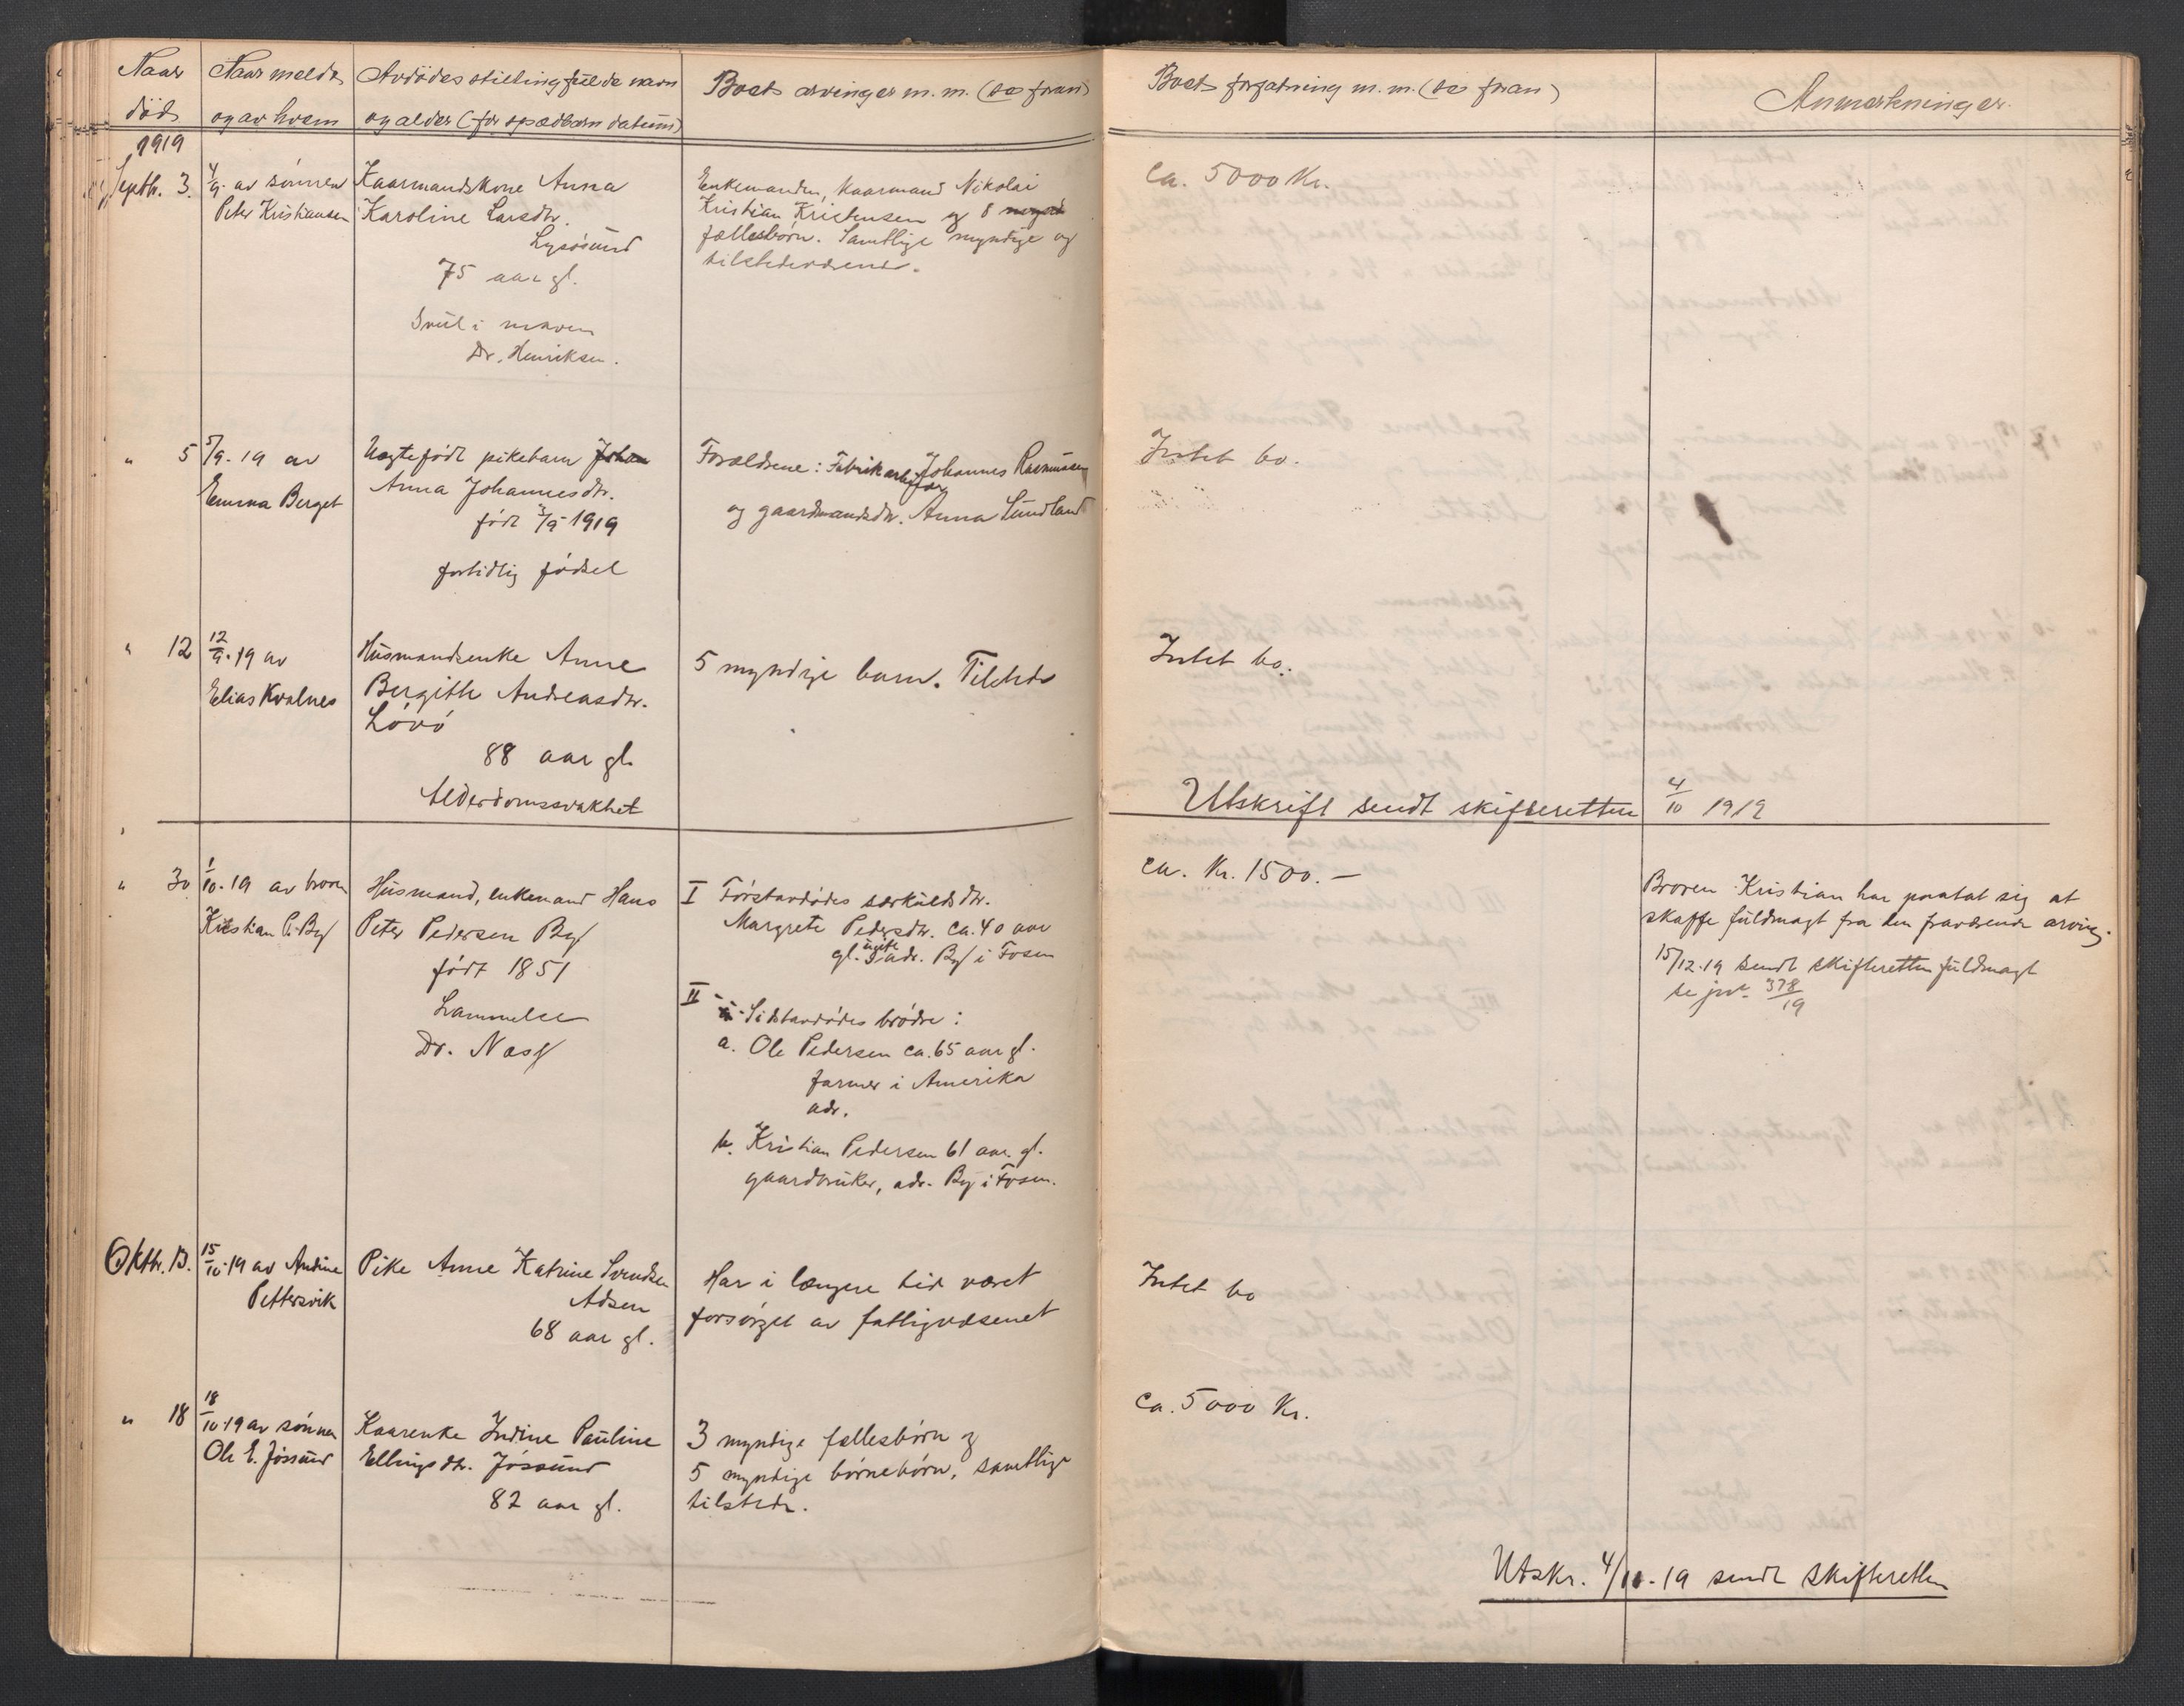 Naar død
Naar meldt og av hvem
Avdødes stilling fulde navn og alder (for spædbarn datum)
Boets arvinger m.m. (se foran)
Boets forfatning m.m. (se foran)
Anmerkninger.
1919
Septbr. 3.
4/9. av sønnen
Peter Kristiansen
Kaarmandskone Anna
Karoline Larsdtr.
Lysøsund
75 aar gl.
Svul i maven
Dr. Henriksen.
Enkemanden, Kaarmand Nikolai
Kristian Kristensen og 8
fællesbørn. Samtlige myndige og
tilstedeværende.
Ca. 5000 Kr.
" 5
5/9. 19 av
Emma Berget
Uegtefødt pikebarn Johan
Anna Johannesdtr.
født 3/9 1919
fortidlig fødsel
Forældrene: Fabrikarbeider Johannes Rasmussen
og gaardmandsdtr. Anna Sundland
Intet bo.
" 12
12/9. 19 av
Elias Kvalnes
Husmandsenke Anne
Bergithe Andreasdtr.
Løvø
88 aar gl.
Alderdomssvakhet
5 myndige barn. Tilstede
Intet bo.
Utskrift sendt skifteretten 4/10 1919
" 30
1/10. 19 av broren
Kristian P. By
Husmand, enkemand Hans
Peter Pedersen By
født 1851
Lammelse
Dr. Næss
I Førstavdødes særkuldsdtr.
Margrete Pedersdtr. ca. 40 aar
gl. ugift adr. By i Fosen
II Sidstavdødes brødre:
a. Ole Pedersen ca. 65 aar gl.
farmer i Amerika
adr.
b. Kristian Pedersen 61 aar gl.
gaardbruker, adr. By i Fosen.
ca. Kr. 1500.—
Broren Kristian har paatat sig at
skaffe fuldmagt fra den fraværende arving.
15/12. 19 sendt skifteretten fuldmagt
se jnr. 378/19
Oktbr. 13.
15/10. 19 av Andine
Pettersvik
Pike Anne Katrine Svendsen
Adsen
68 aar gl.
Har i længere tid været
forsørget av fattigvæsenet
Intet bo
" 18
18/10. 19 av sønnen
Ole E. Jøssund
Kaarenke Indine Pauline
Ellingsdtr. Jøssund
82 aar gl.
3 myndige fællesbørn og
5 myndige børnebørn, samtlige
tilstede.
Ca. 5000 Kr.
Utskr. 4/11. 19 sendt skifteretten